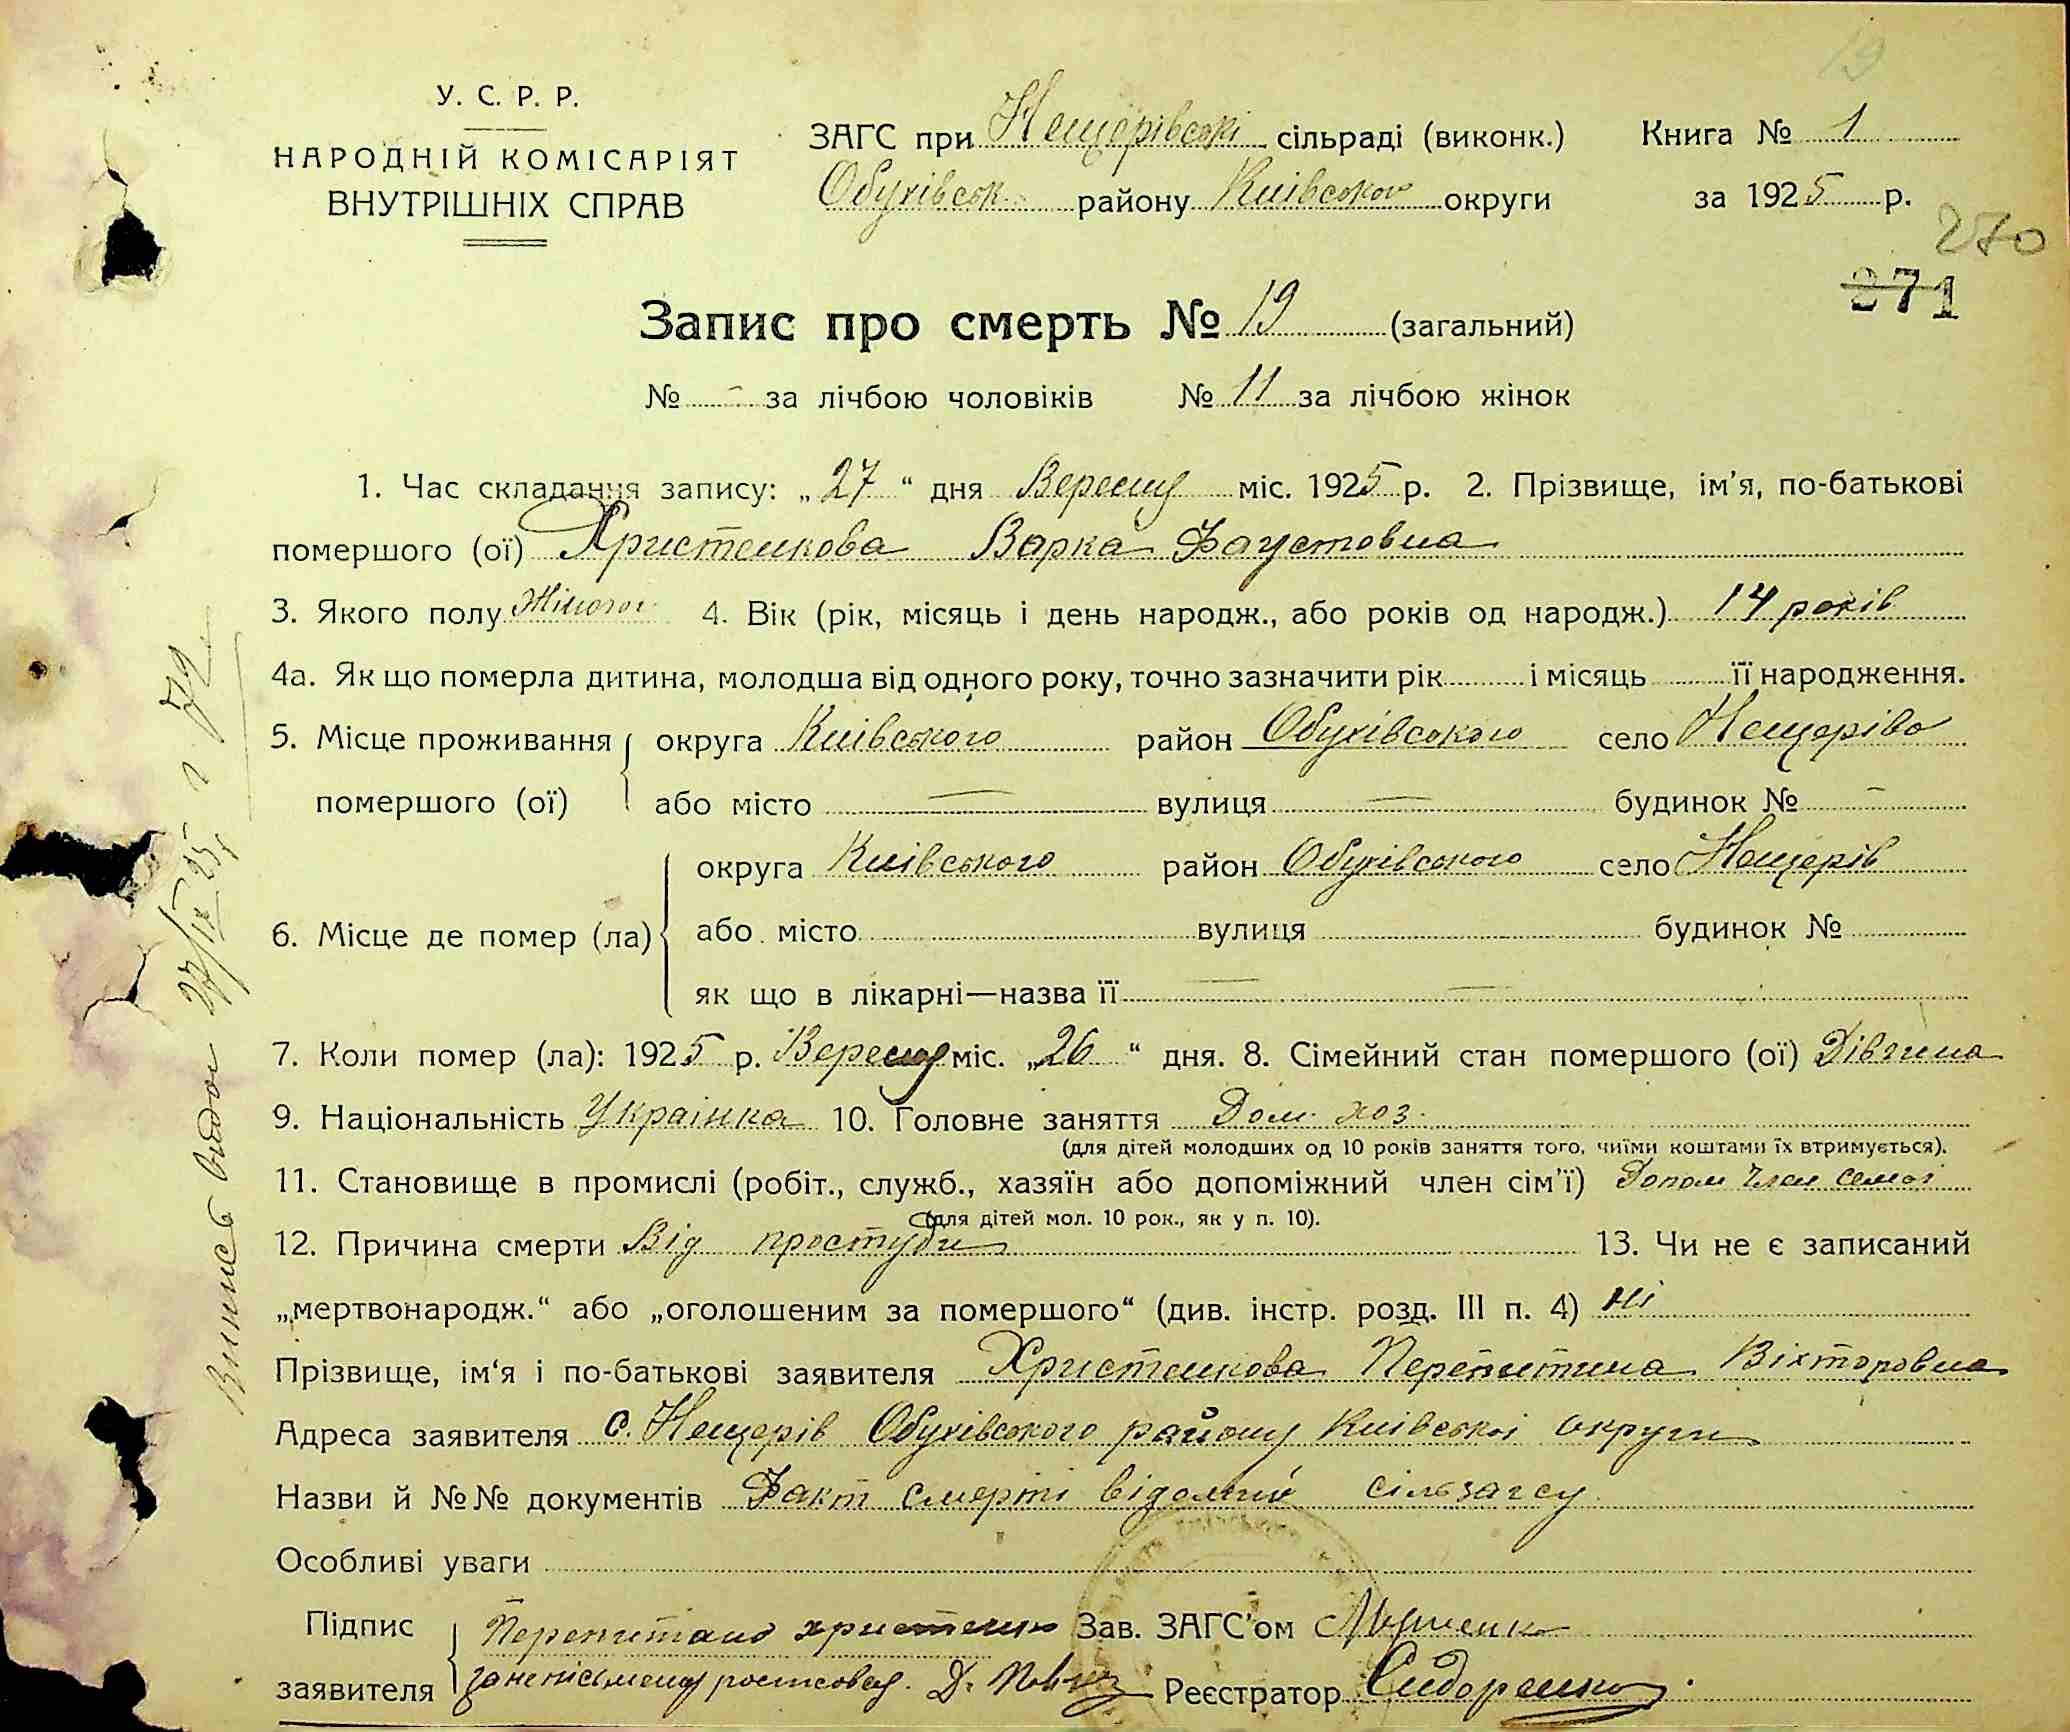 19
У. С. Р. Р.
НАРОДНІЙ КОМІСАРІЯТ
ВНУТРІШНІХ СПРАВ
ЗАГС при Нещерівські сільраді (виконк.)
Обухівськ району Київської округи
Книга № 1
за 1925 р.
270
371
Запис про смерть № 19 (загальний)
№ - за лічбою чоловіків № 11 за лічбою жінок
1. Час складання запису: „27“ дня Вересня міс. 1925 р. 2. Прізвище, ім'я, по-батькові
помершого (ої) Христенкова Варка Фаустовна
3. Якого полу Жіного 4. Вік (рік, місяць і день народж., або років од народж.) 14 років
4а. Як що померла дитина, молодша від одного року, точно зазначити рік і місяць її народження.
5. Місце проживання помершого (ої) округа Київського район Обухівського село Нещеріво
або місто — вулиця — будинок № -
6. Місце де помер (ла) округа Київського район Обухівського село Нещерів
або місто вулиця будинок №
як що в лікарні—назва її — —
7. Коли помер (ла): 1925 р. Вересня міс. „26“ дня. 8. Сімейний стан помершого (ої) Дівчина
9. Національність Українка 10. Головне заняття Дом. хоз.
(для дітей молодших од 10 років заняття того, чиїми коштами їх втримується).
11. Становище в промислі (робіт., служб., хазяїн або допоміжний член сім'ї) Допом член семьї
(для дітей мол. 10 рок., як у п. 10).
12. Причина смерти Від простуди 13. Чи не є записаний
„мертвонародж.“ або „оголошеним за помершого“ (див. інстр. розд. III п. 4) ні
Прізвище, ім'я і по-батькові заявителя Христенкова Перепитина Вікторовна
Адреса заявителя с. Нещерів Обухівського району Київської округи
Назви й №№ документів Факт смерті відомий сільзагсу
Особливі уваги
Підпис заявителя Перепитано христенко Зав. ЗАГС'ом
за неписьмену росписовся Д. Реєстратор Сидоренко
Випись видої 27/IX 25 г 72